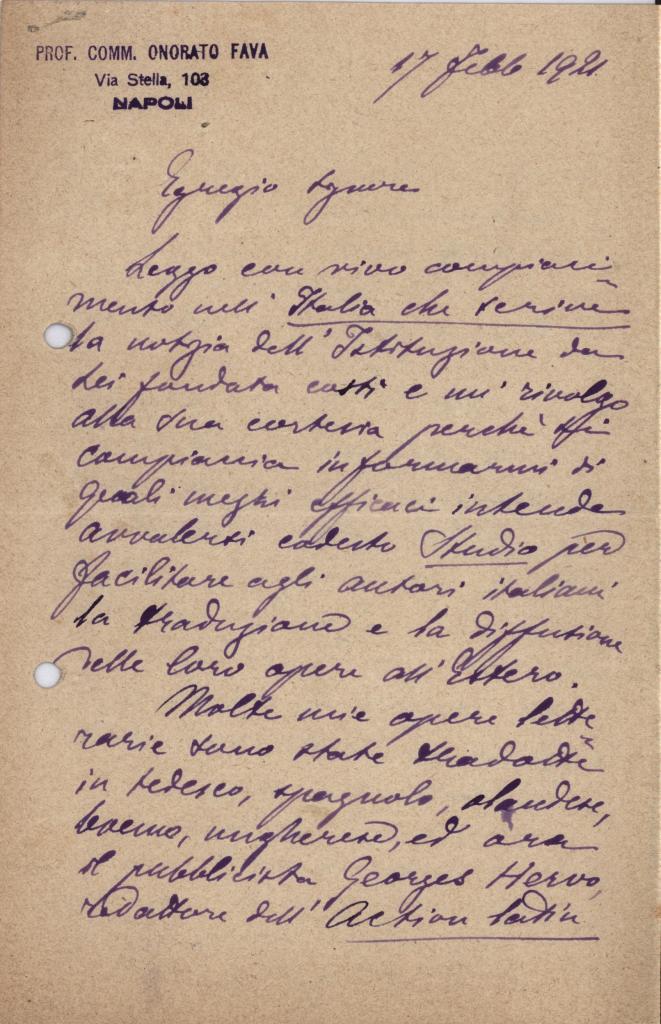 PROF. COMM. ONORATO FAVA
Via Stella, 103
NAPOLI
17 Febb 1921
Egregio Signore
Leggo con vivo compiaci=
mento nell' Italia che scrive
la notizia dell' Istituzione da
Lei fondata costì e mi rivolgo
alla Sua cortesia perchè si
compiaccia informarmi di
quali mezzi efficaci intende
avvalersi codesto Studio per
facilitare agli autori italiani
la traduzione e la diffusione
delle loro opere all'Estero.
Molte mie opere lette=
rarie sono state tradotte
in tedesco, spagnolo, olandese,
boemo, ungherese, ed ora
il pubblicista Georges Hervo,
redattore dell' Action latin